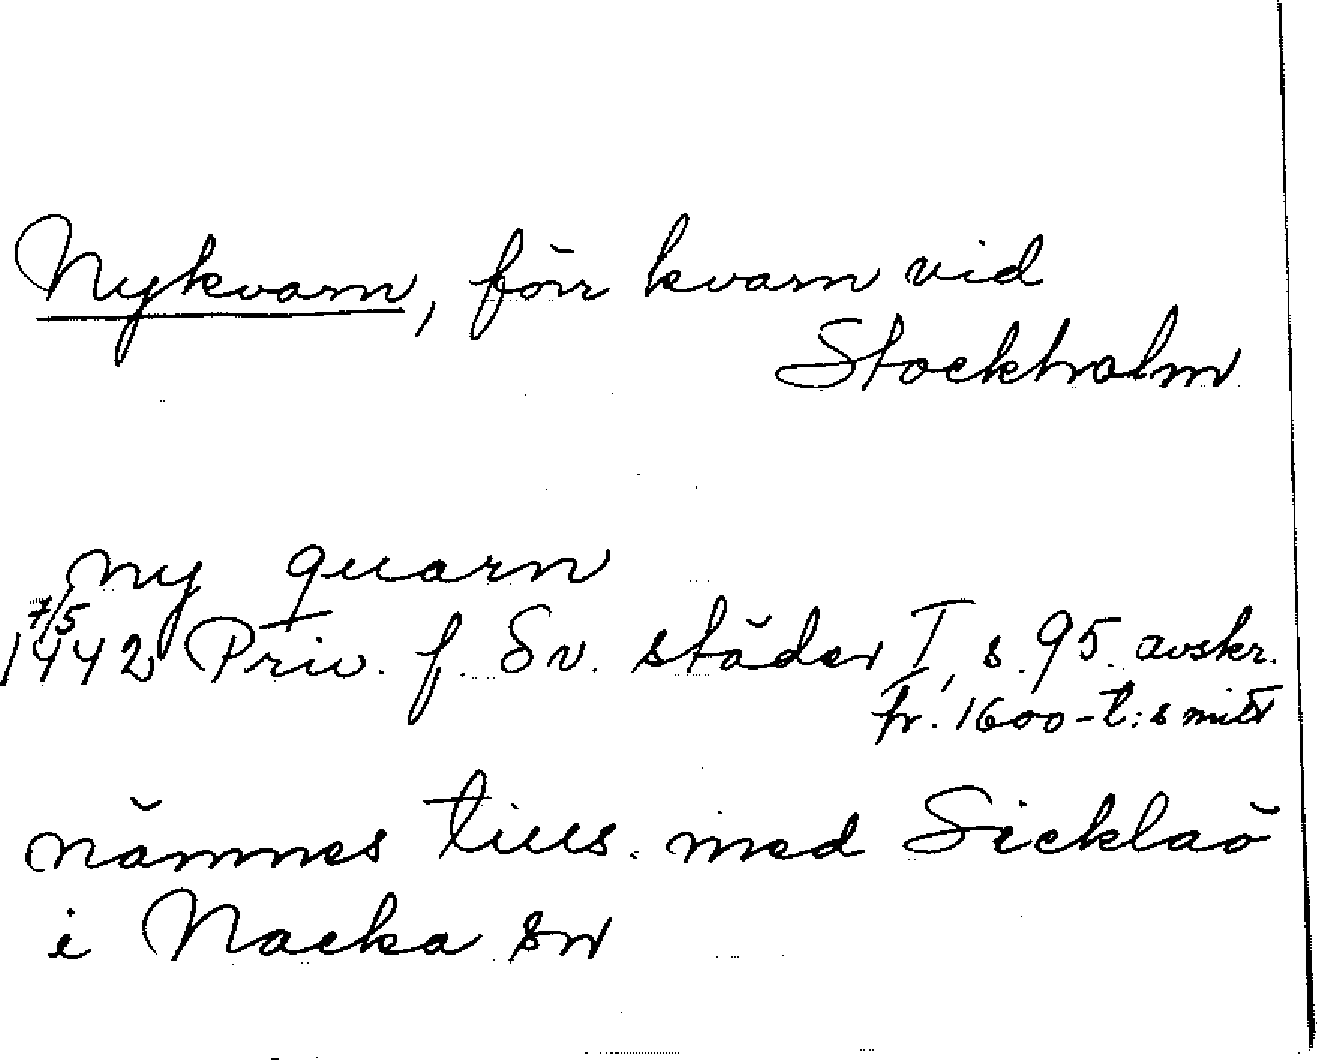 Nykvarn, förr kvarn vid
Stockholm
ny quarn
7/5
1442 Priv. f. Sv. städer I, s. 95. avskr.
fr. 1600-t:s mitt
nämnes tills. med Sicklaö
i Nacka sn